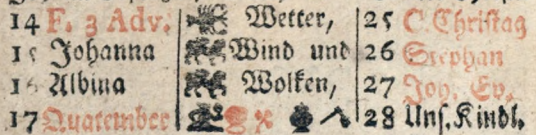 14 F. 3 Adv. Wetter, 25 C. Christag
15 Johanna Wind und 26 Stephan
16 Albina Wolken, 27 Joh. Ev.
17 Quatember 28 Uns. Kindl.